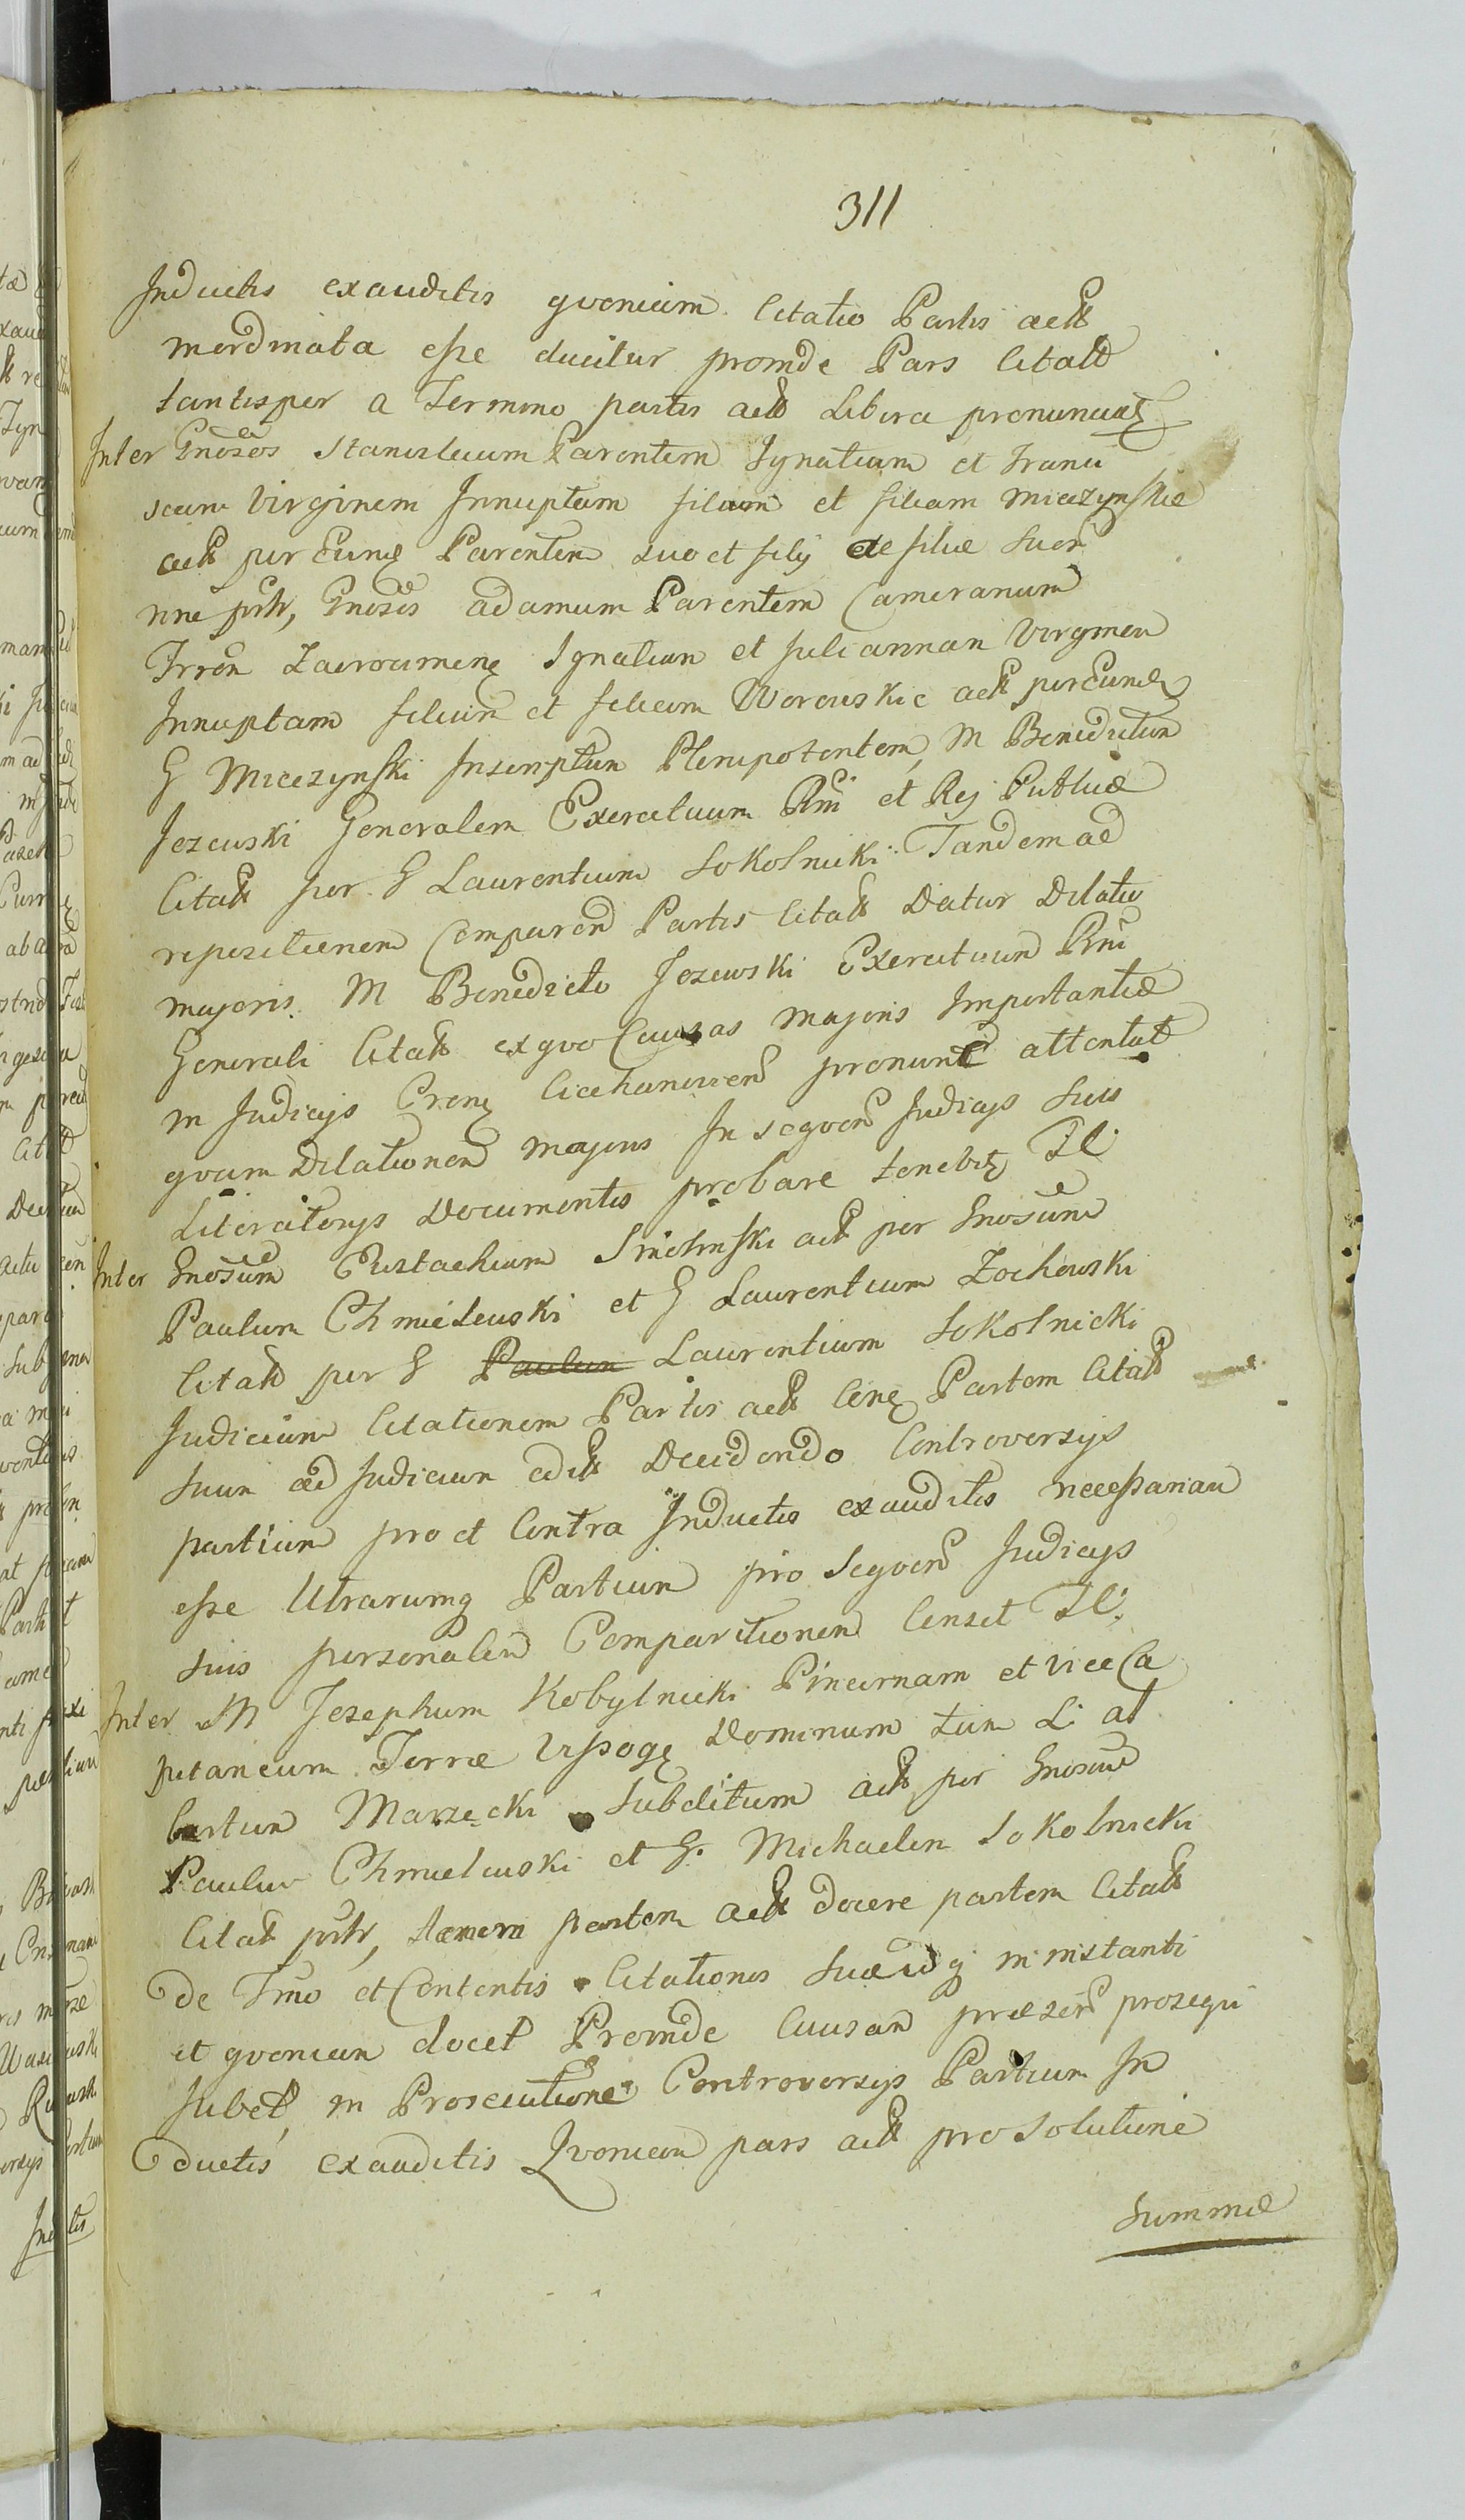 311
Inductis exauditis qvoniam Citatio Partis actt
inordinata esse ducitur proinde Pars Citatt
tantisper a Termino partis actt Libera pronunciatq
Inter Gnosos Stanislaum Parentem Ignatium et Franci
scam Virginem Innuptam filium et filiam Miczynskie
actt per Eumq Parentem suo et filij ae filiae suor
nne prtr, Gnosos Adamum Parentem Cameranum
Trrön Zacroczimenq Ignatium et Juliannam Virginem
Innuptam filium et filiam Worowskie actt per Eumq
G Miczynski Inscriptum Plenipotentem, M Benedictum
Jezewski Generalem Exercituum Rni et Rej Publicae
Citatt per G Laurentium Sokolnicki. Tandem ad
repositionem Comparend Partis Citatt Datur Dilatio
majoris. M Benedicto Jezewski Exercituum Rni
Generali Citatt exqvo Causas majoris Importantiae
in Judicijs Crenq Ciechanovien pronunc attentat
qvam Dilationem majoris In seqven Judicijs suis
Literatorijs Documentis probare tenebitq Pl
Inter Gnosum Eustachium Smolinski actt per Gnosum
Paulum Chmielewski et G Laurentium Zochowski
Citatt per G Paulum Laurentium Sokolnicki
Judicium Citationem Partis actt Cenq Partem Citatt
suum ad Judicium editt Decidendo Controversijs
partium pro et Contra Inductis exauditis necessariam
esse Utrarumq Partium pro Seqven Judicijs
suis personalem Comparitionem Censet Pl.
Inter M Josephum Kobylnicki Pincernam et Vice Ca
pitaneum Terrae Vissogq Dominum tum L al
bertum Marzecki Subditum actt per Gnosum
Paulum Chmielewski et G. Michaelem Sokolnicki
Citatt prtr, tamen partem actt docere partem Citatt
de Tmo et Contentis Citationis suae idq in instanti
et qvoniam docet Proinde Causam praesen prosequi
Jubet, in Prosecutione Controversijs Partium In
ductis exauditis Qvoniam pars actt pro solutione
Summae